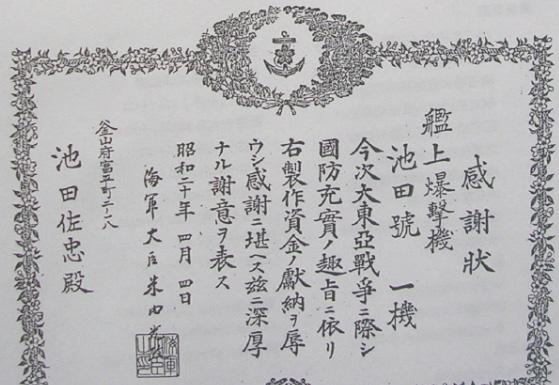 感謝狀
艦上爆擊機
池田號 一機
今次大東亞戰爭ニ際シ
國防充實ノ趣旨ニ依リ
右製作資金ノ獻納ヲ辱
ウシ感謝ニ堪ヘス茲ニ深厚
ナル謝意ヲ表ス
昭和二十年 四月 四日
海軍大臣米内光政
釜山府富平町二ノ八
池田佐忠殿